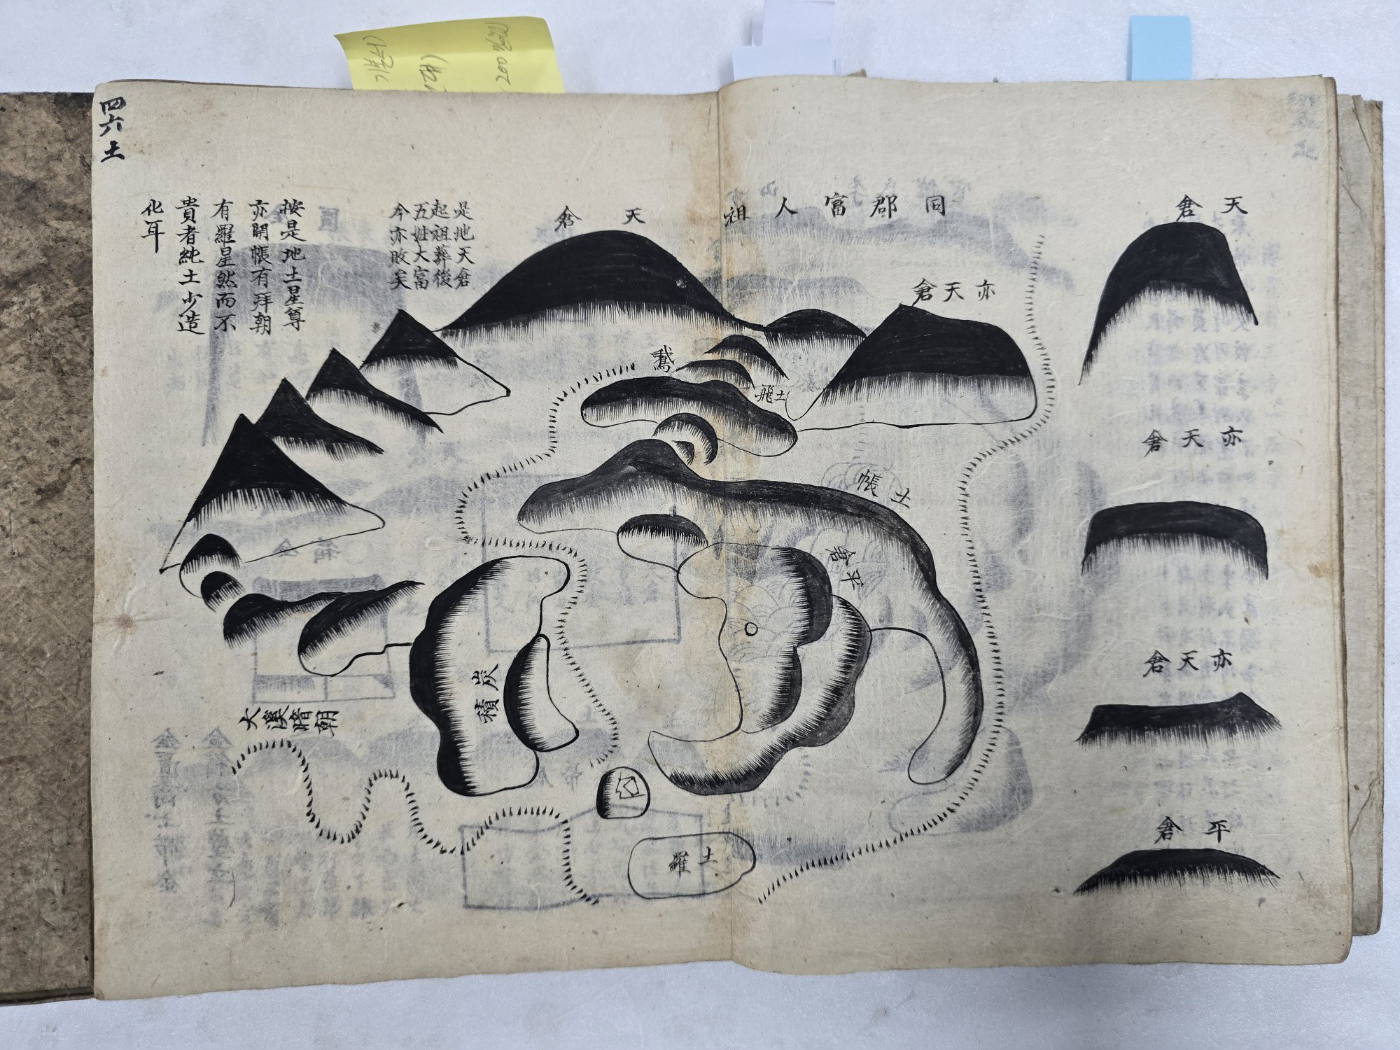 天倉
亦天倉
亦天倉
平倉
同郡富人祖
亦天倉
天倉
鵞
土
土帳
平倉
炭積
土羅
是地天倉
起祖葬後
五姓大富
今亦敗矣
按是地土星尊
亦開帳有拜朝
有羅星然而不
貴者純土少造
化耳
大溪暗朝
四六土